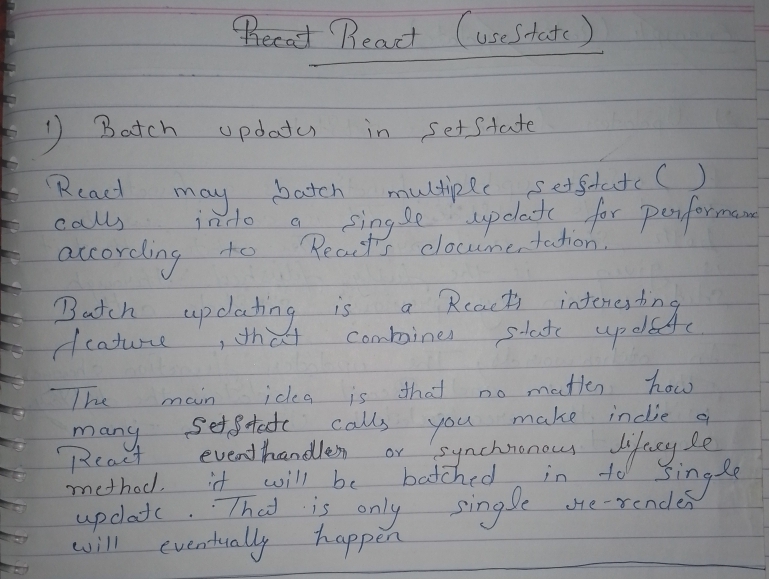 Recat React (useState)
1) Batch updates in setState
React may batch multiple setState()
calls into a single update for performanc
according to React's documentation.
Batch updating is a React's interesting
feature, that combines state update
The main idea is that no matter how
many setState calls you make indie a
React eventhandler or synchronous lifecycle
method. it will be batched in to single
update. That is only single re-render
will eventually happen